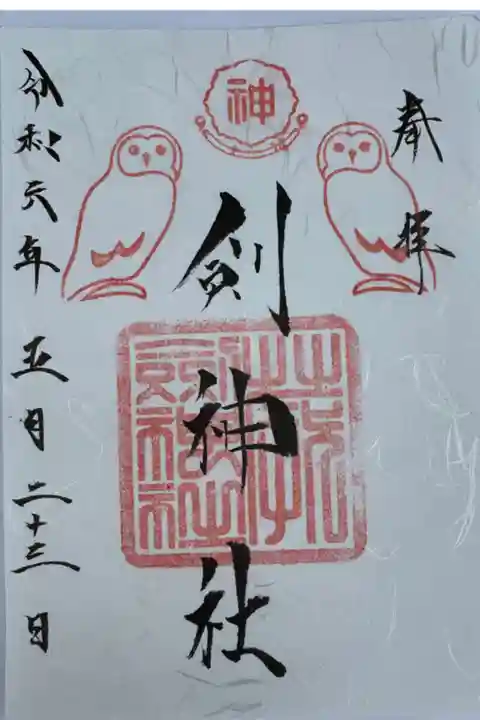 奉拝
神
剣神社
令和元年五月二十三日